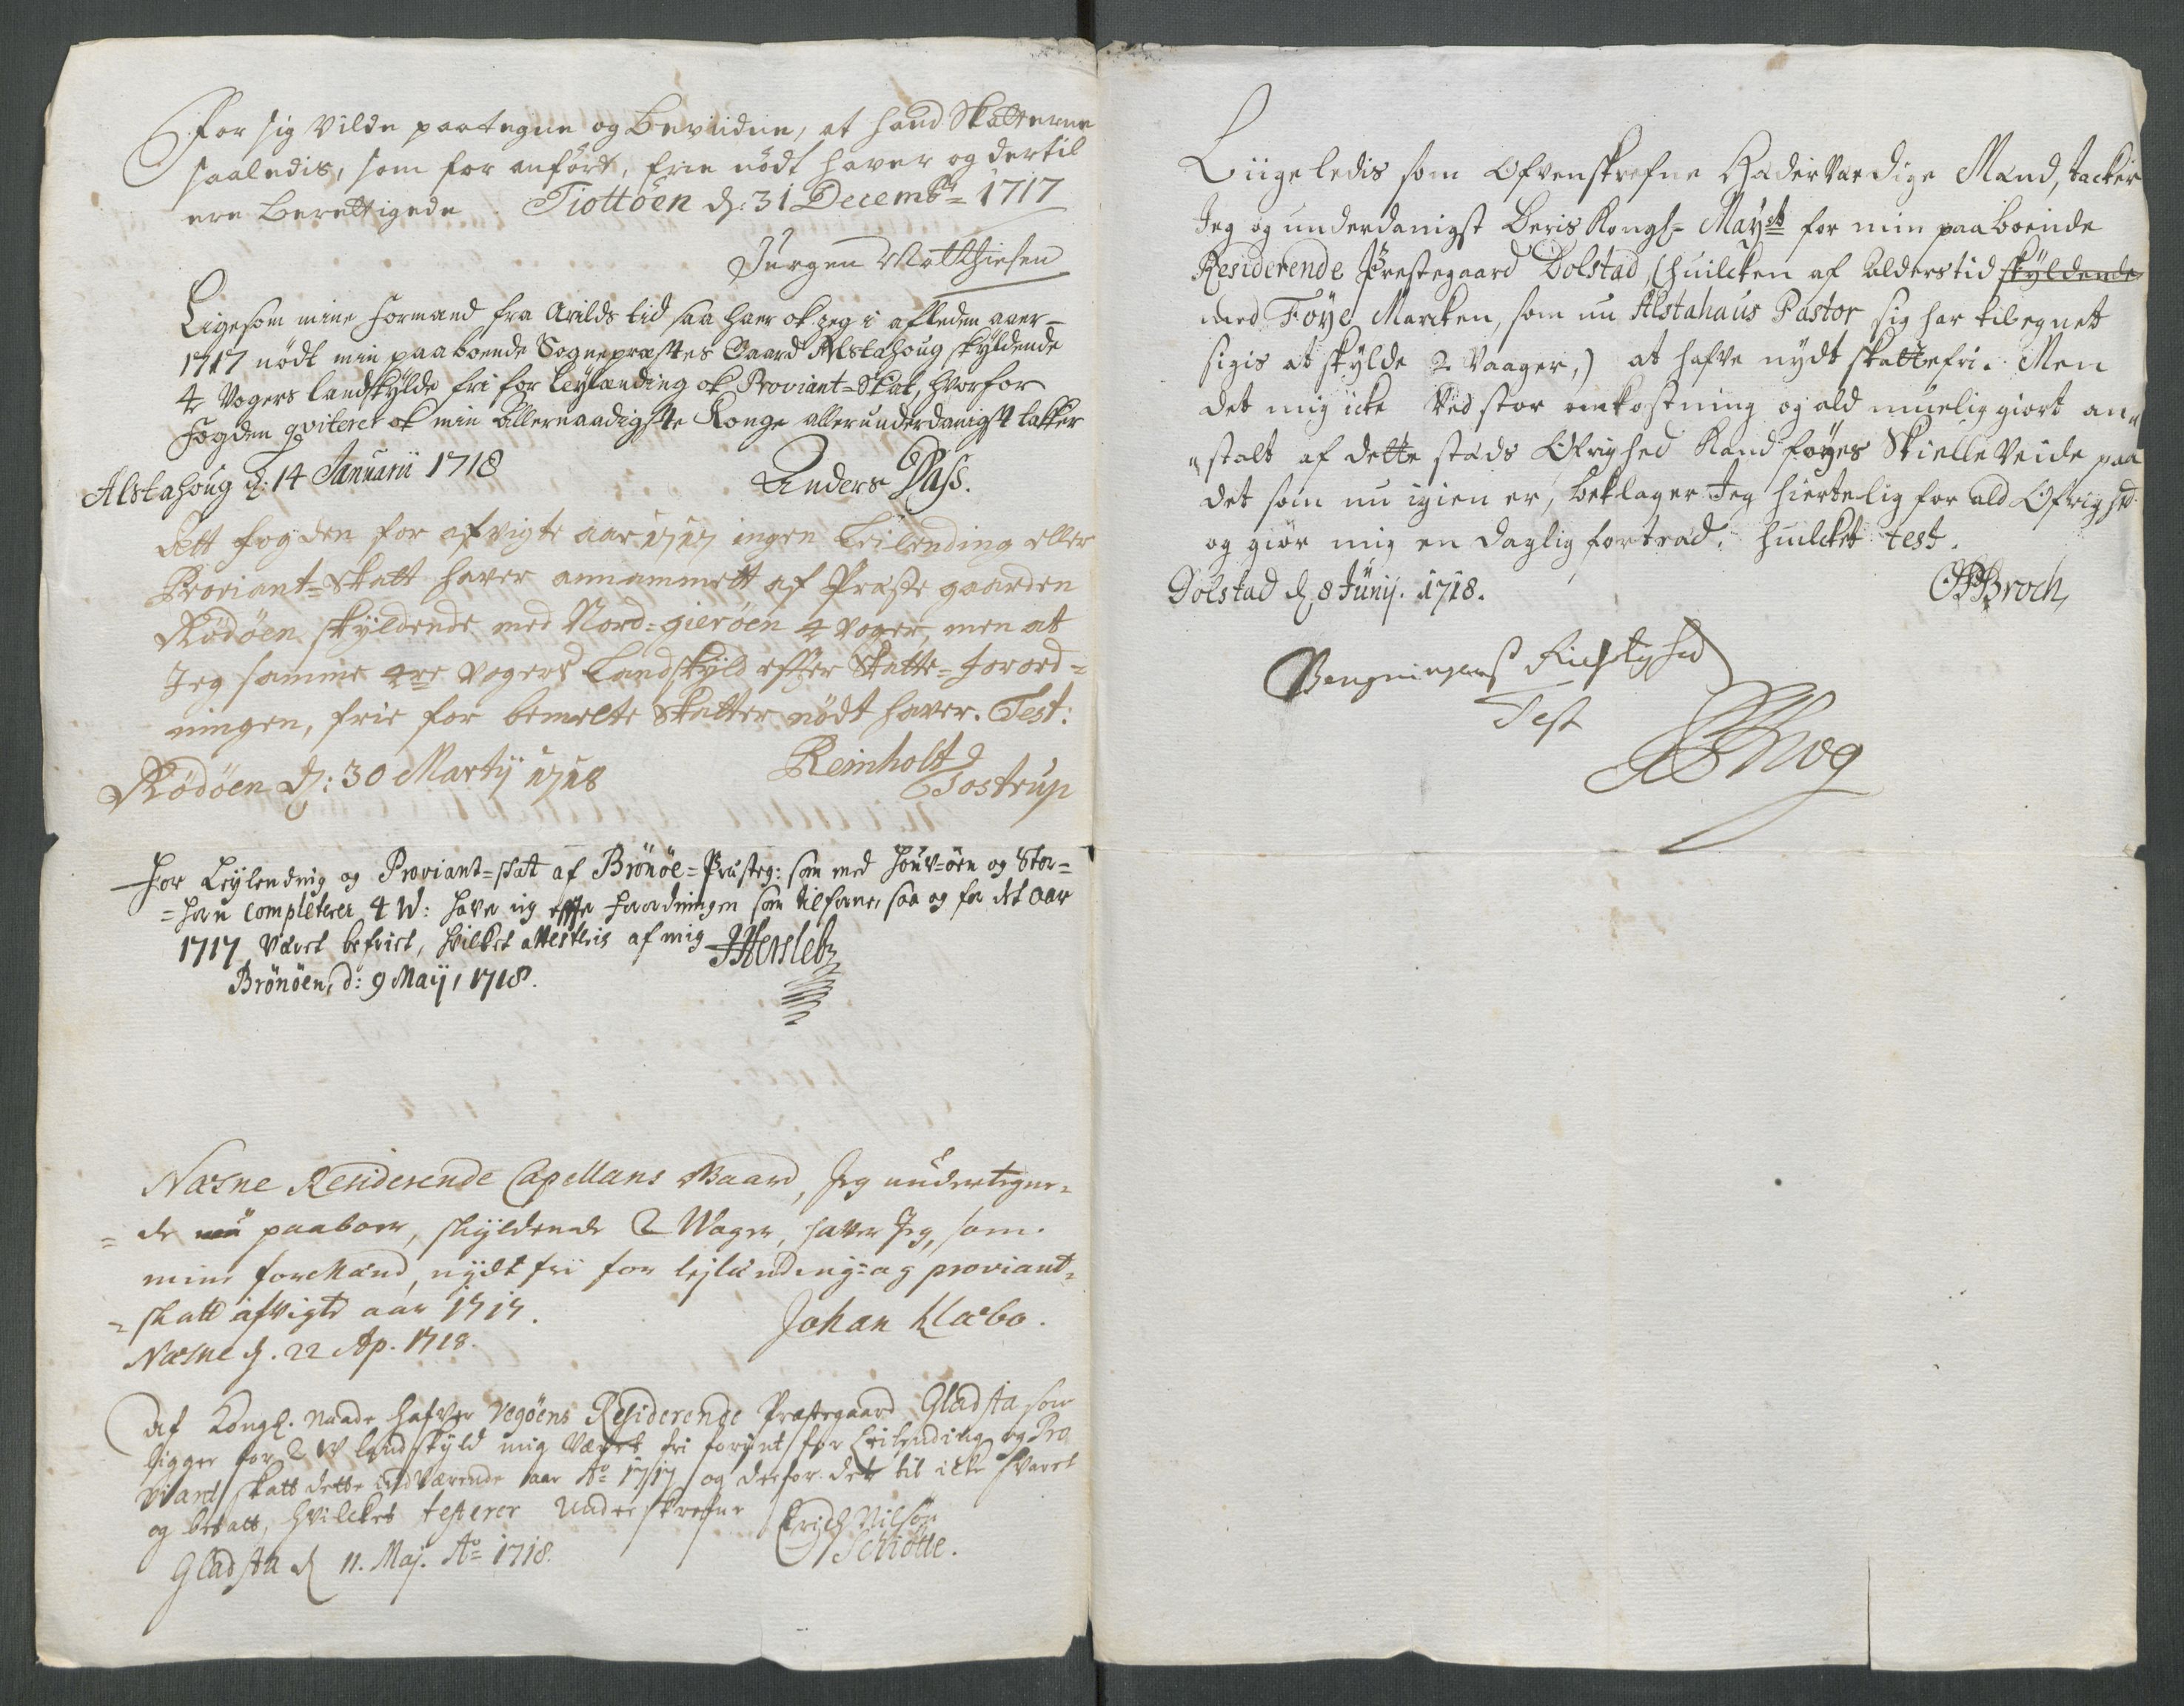 For sig vilde paategne og Beviidne, at hand Skatterne
saaledis, som for anført, frie nødt haver og dertil
ere Berettigede. Tiottøen d: 31 Decembr 1717
Jürgen Matthiesen
Ligesom mine Formænd fra Arilds tid saa haer ok ieg i afleden aaer
1717 nødt min paaboende Sognepræstes Gaard Alstahoug skÿldende
4 Vogers landskÿlde fri for leÿlænding ok Proviant-Skat, hvorfor
Fogden qviteret ok min Allernaadigste Konge allerunderdanigst takker
Alstahoug d: 14 Januarii 1718 Anders Dass.
Att fogden for afvigte aar 1717 ingen Leilending eller
Proviant-Skatt haver annammett af Præste gaarden
Rødøen skÿldende med Nord-gierøen 4 voger, men at
Jeg samme 4re vogers Landskÿld effter Skatte-Forord-
ningen, frie for bemelte Skatter nødt haver. Test:
Rødøen d: 30 Martÿ 1718 Reinholt
Tostrup
For Leÿlending og Proviant-skatt af Brønøe-Præsteg: som med Houv-øen og Stor-
-horn completerer 4 W: haver ieg effter forordningen som tilforne, saa og for det aar
1717 været befriet, hvilket attesteris af mig JHersleb
Brønøen, d: 9 Maÿ, 1718.
Næsne Residerende Capellans Gaard, Jeg undertegne-
-de nu paaboer, skÿldende 2 Woger, haver Jeg, som
mine forMænd, nÿdt fri for leylænding- og proviant-
-skatt afvigte aar 1717.
Johan Klæbo.
Næsne d. 22 Ap. 1718.
Af Kongl. Naade hafver Vegøens Residerende Præstegaard Gladsta som
ligger for 2 W landskÿld mig været fri forundt for Leilending og Pro
viant skatt dette indværende aar Ao 1717 og derfor der til icke svaret
og betalt, hvilcket testerer underskrefne Erich Nilsøn
Schiøtte.
Gladsta d 11. Maj. Ao 1718.
Liigeledis som Ofvenskrefne Hæderværdige Mænd, tacker
Jeg og underdanigst Deris Kongl- Mayst for min paaboende
Residerende Præstegaard Dolstad, (huilcken af Alderstid skÿldende
med Føÿe Marcken, som nu Alstahaus Pastor sig har tilegnett
sigis at skÿlde 2 Vaager,) at hafve nÿdt skattefri. Men
det mig icke ved stor omkostning og ald müelig giort an-
"stalt af dette stæds Øfrighed kand føÿes Skielle Veide paa
det som nu igien er, beklager Jeg hiertelig for ald Øfrighed
og giør mig en daglig fortræd. huilcket test.
Dolstad d. 8 Junij. 1718. OPBroch,
Gengningens Rigtighed
Test